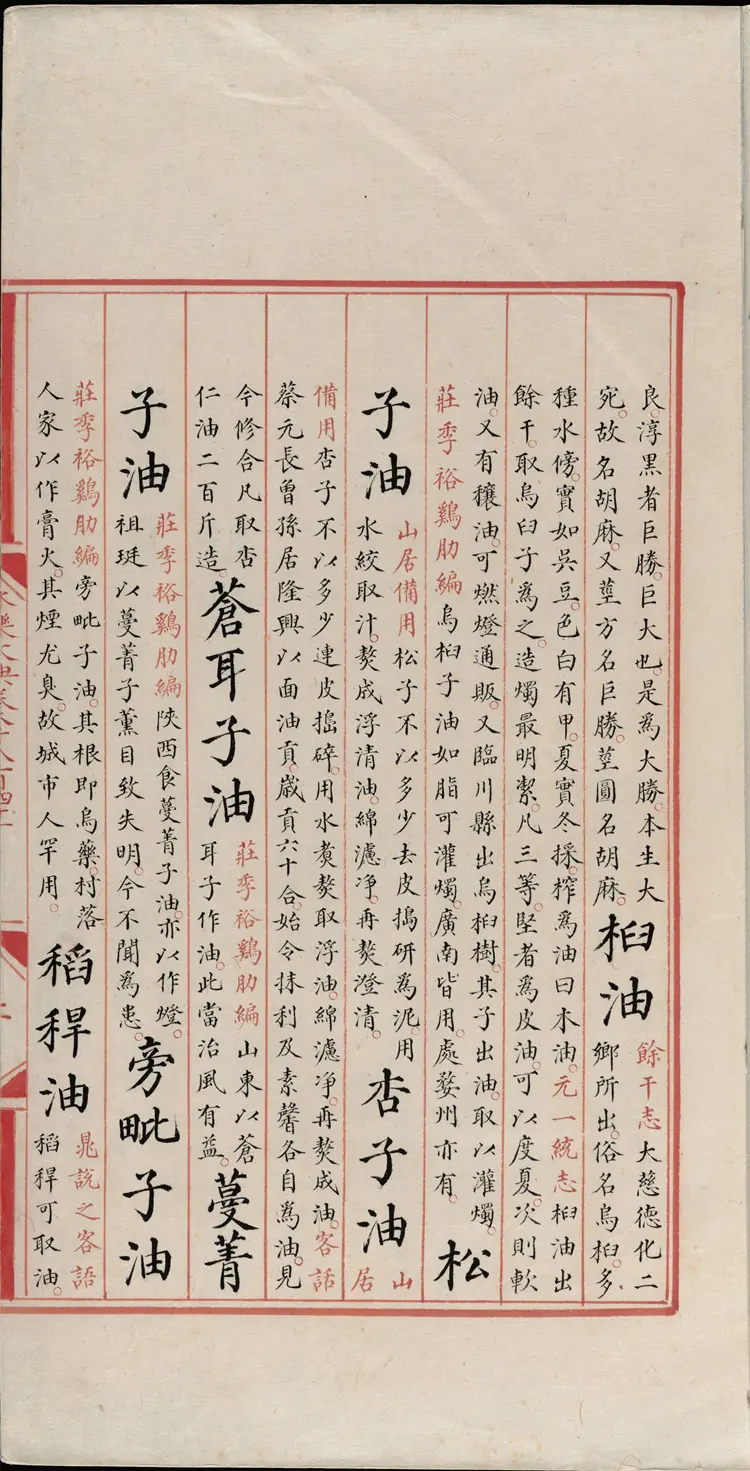 良。淳黑者巨勝。巨大也。是為大勝。本生大
宛。故名胡麻。又莖方名巨勝。莖圓名胡麻。
桕油
餘干志大慈德化二
鄉所出。俗名烏桕。多
種水傍。實如吳豆。色白有甲。夏實冬採。榨為油曰木油。元一統志桕油出
餘干。取烏臼子為之。造燭最明潔。凡三等。堅者為皮油。可以度夏。次則軟
油。又有穰油。可燃燈通販。又臨川縣出烏桕樹。其子出油。取以灌燭。
莊季裕鷄肋編烏桕子油如脂可灌燭。廣南皆用。處婺州亦有。
松
子油
山居備用松子不以多少去皮搗研為泥。用
水絞取汁。熬成浮清油。綿濾净。再熬澄清。
杏子油
山
居
備用杏子不以多少連皮搗碎。用水煑熬取浮油。綿濾净。再熬成油。客話
蔡元長曾孫居隆興以面油貢。歲貢六十合。始令抹利及素馨各自為油。見
今修合凡取杏
仁油二百斤造
蒼耳子油
莊季裕鷄肋編山東以蒼
耳子作油。此當治風有益。
蔓菁
子油
莊季裕鷄肋編陝西食蔓菁子油。亦以作燈。
祖珽以蔓菁子薰目致失明。今不聞為患。
旁毗子油
莊季裕鷄肋編旁毗子油。其根即烏藥。村落
人家以作膏火。其煙尤臭。故城市人罕用。
稻稈油
晁說之客語
稻稈可取油。